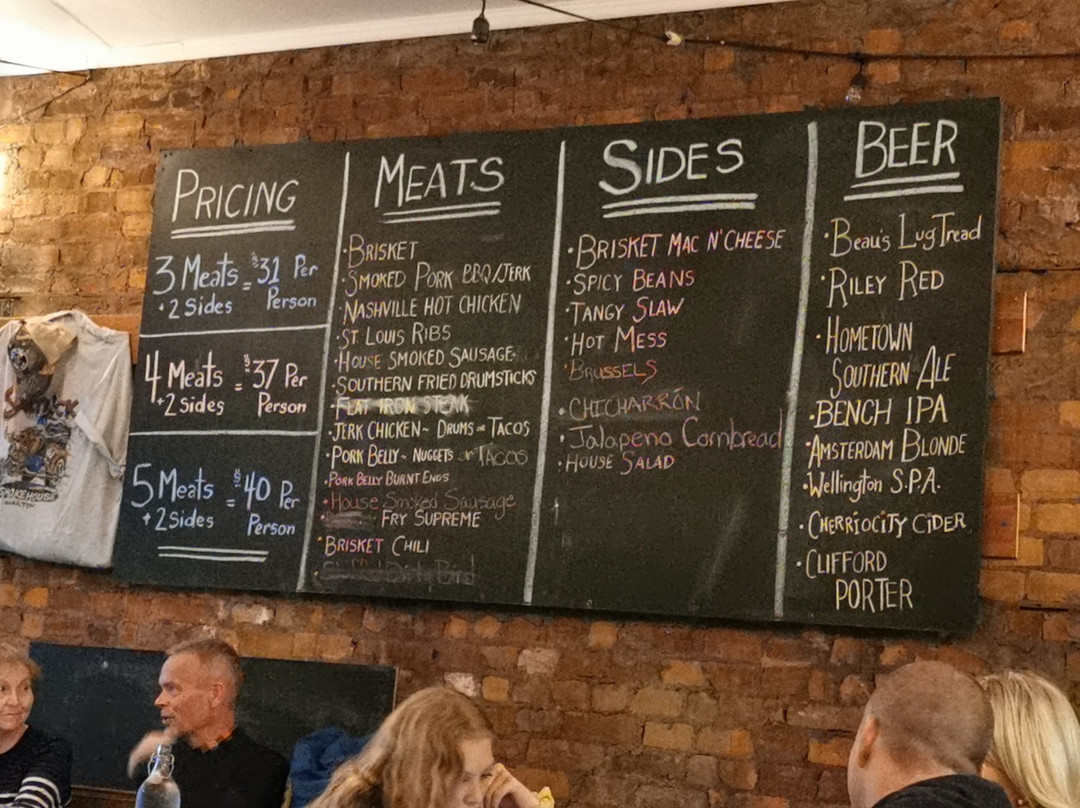 PRICING
3 Meats = $31 Per
+2 Sides Person
4 Meats = $37 Per
+2 Sides Person
5 Meats = $40 Per
+2 Sides Person
MEATS
·BRISKET
·SMOKED PORK BBQ/JERK
·NASHVILLE HOT CHICKEN
·ST. LOUIS RIBS
·HOUSE SMOKED SAUSAGE
·SOUTHERN FRIED DRUMSTICKS
·FLAT IRON STEAK
·JERK CHICKEN~ DRUMS or TACOS
·PORK BELLY~ NUGGETS or TACOS
·PORK BELLY BURNT ENDS
·House Smoked Sausage
FRY SUPREME
·BRISKET CHILI
Stuffed Dirty Bird
SIDES
·BRISKET MAC N' CHEESE
·SPICY BEANS
·TANGY SLAW
·HOT MESS
·BRUSSELS
·CHICHARRÓN
·Jalapeno Cornbread
·HOUSE SALAD
BEER
·Beau's LugTread
·RILEY RED
·HOMETOWN
SOUTHERN ALE
·BENCH IPA
·AMSTERDAM BLONDE
·Wellington S.P.A.
·CHERRIOCITY CIDER
·CLIFFORD
PORTER
SMOKEHOUSE